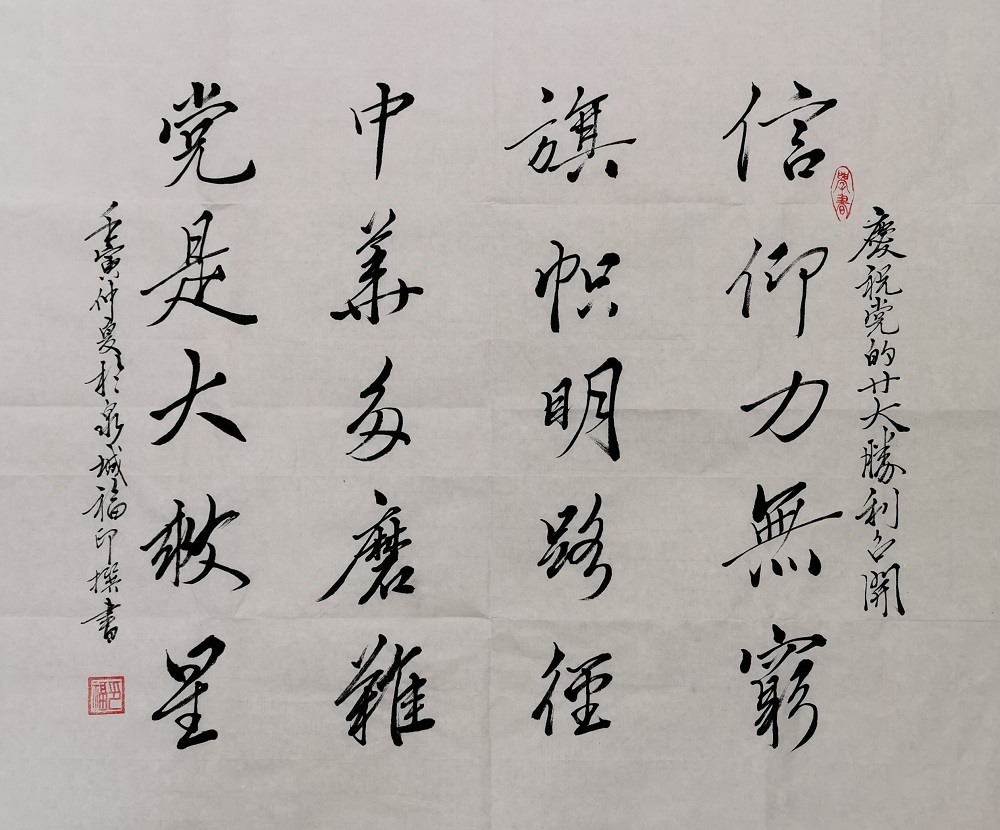 學書
慶祝党的廿大勝利召開
信仰力無窮
旗帜明路徑
中華多磨難
党是大救星
壬寅仲夏於泉城福印撰書